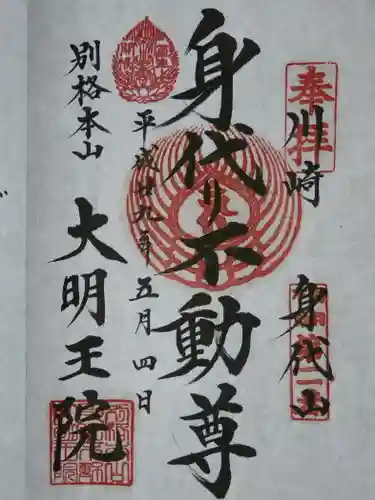 奉拝
川崎
身代山
身代り不動尊
平成廿九年五月四日
別格本山
大明王院